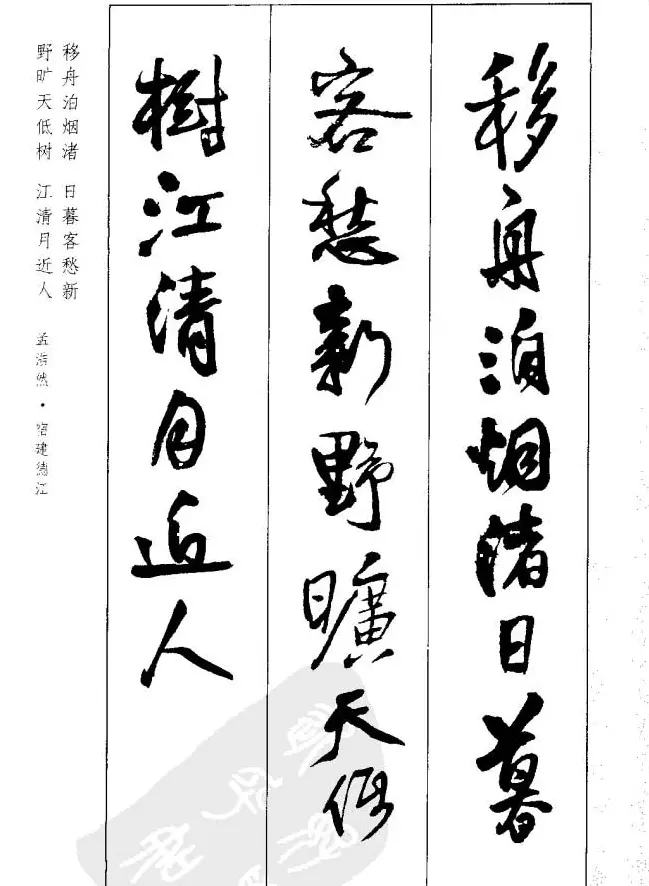 移舟泊烟渚日暮
客愁新野曠天低
樹江清月近人
移舟泊烟渚 日暮客愁新
野旷天低树 江清月近人 孟浩然·宿建德江